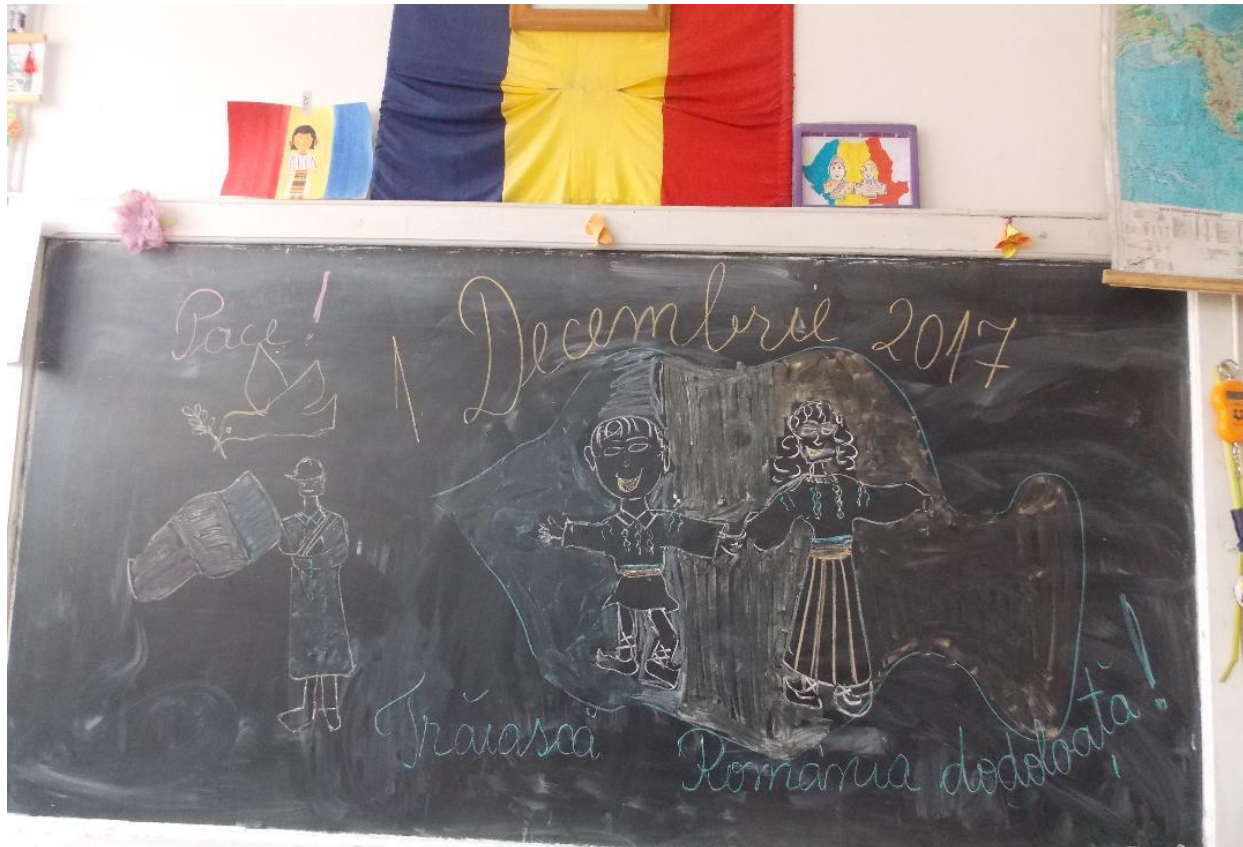 Pace!
1 Decembrie 2017
Trăiască România dodoloață!